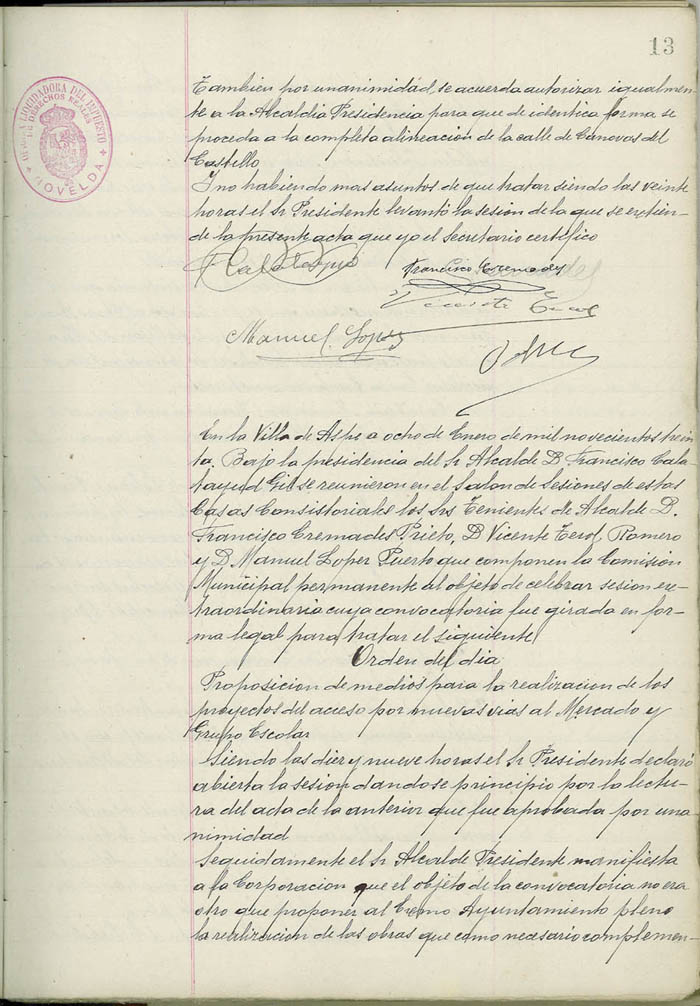 13
OFICINA LIQUIDADORA DEL IMPUESTO
DE DERECHOS REALES
NOVELDA
Tambien por unanimidad se acuerda autorizar igualmen-
te a la Alcaldia Presidencia para que de identica forma se
proceda a la completa alineacion de la calle de Canovas del
Castillo
Y no habiendo mas asuntos de que tratar siendo las veinte
horas el Sr Presidente levantó la sesion de la que se extien-
de la presente acta que yo el Secretario certifico
F Calatayud
Francisco Cremades
Vicente Terol
Manuel Lopez
En la Villa de Aspe a ocho de Enero de mil novecientos trein
ta. Bajo la presidencia del Sr Alcalde D. Francisco Cala-
tayud Gil se reunieron en el Salon de Sesiones de estas
Casas Consistoriales los Srs Tenientes de Alcalde D.
Francisco Cremades Prieto, D Vicente Terol Romero
y D Manuel Lopez Puerto que componen la Comision
Municipal permanente al objeto de celebrar sesion ex-
traordinaria cuya convocatoria fue girada en for-
ma legal para tratar el siguiente
Orden del dia
Proposicion de medios para la realizacion de los
proyectos del acceso por nuevas vias al Mercado y
Grupo Escolar
Siendo las diez y nueve horas el Sr Presidente declaró
abierta la sesion dandose principio por la lectu-
ra del acta de la anterior que fue aprobada por una
nimidad
Seguidamente el Sr Alcalde Presidente manifiesta
a la Corporacion que el objeto de la convocatoria no era
otro que proponer al Excmo Ayuntamiento pleno
la realizacion de las obras que como necesario complemen-